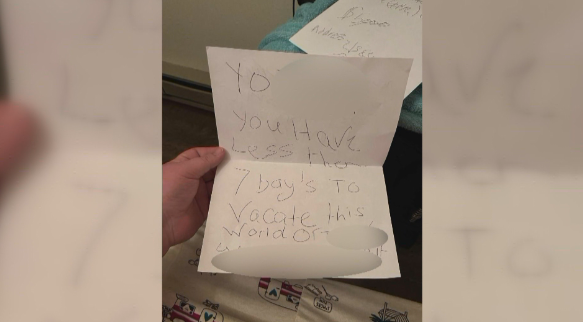 YO
You Have
Less then
7 Day's To
Vacate this
World Or